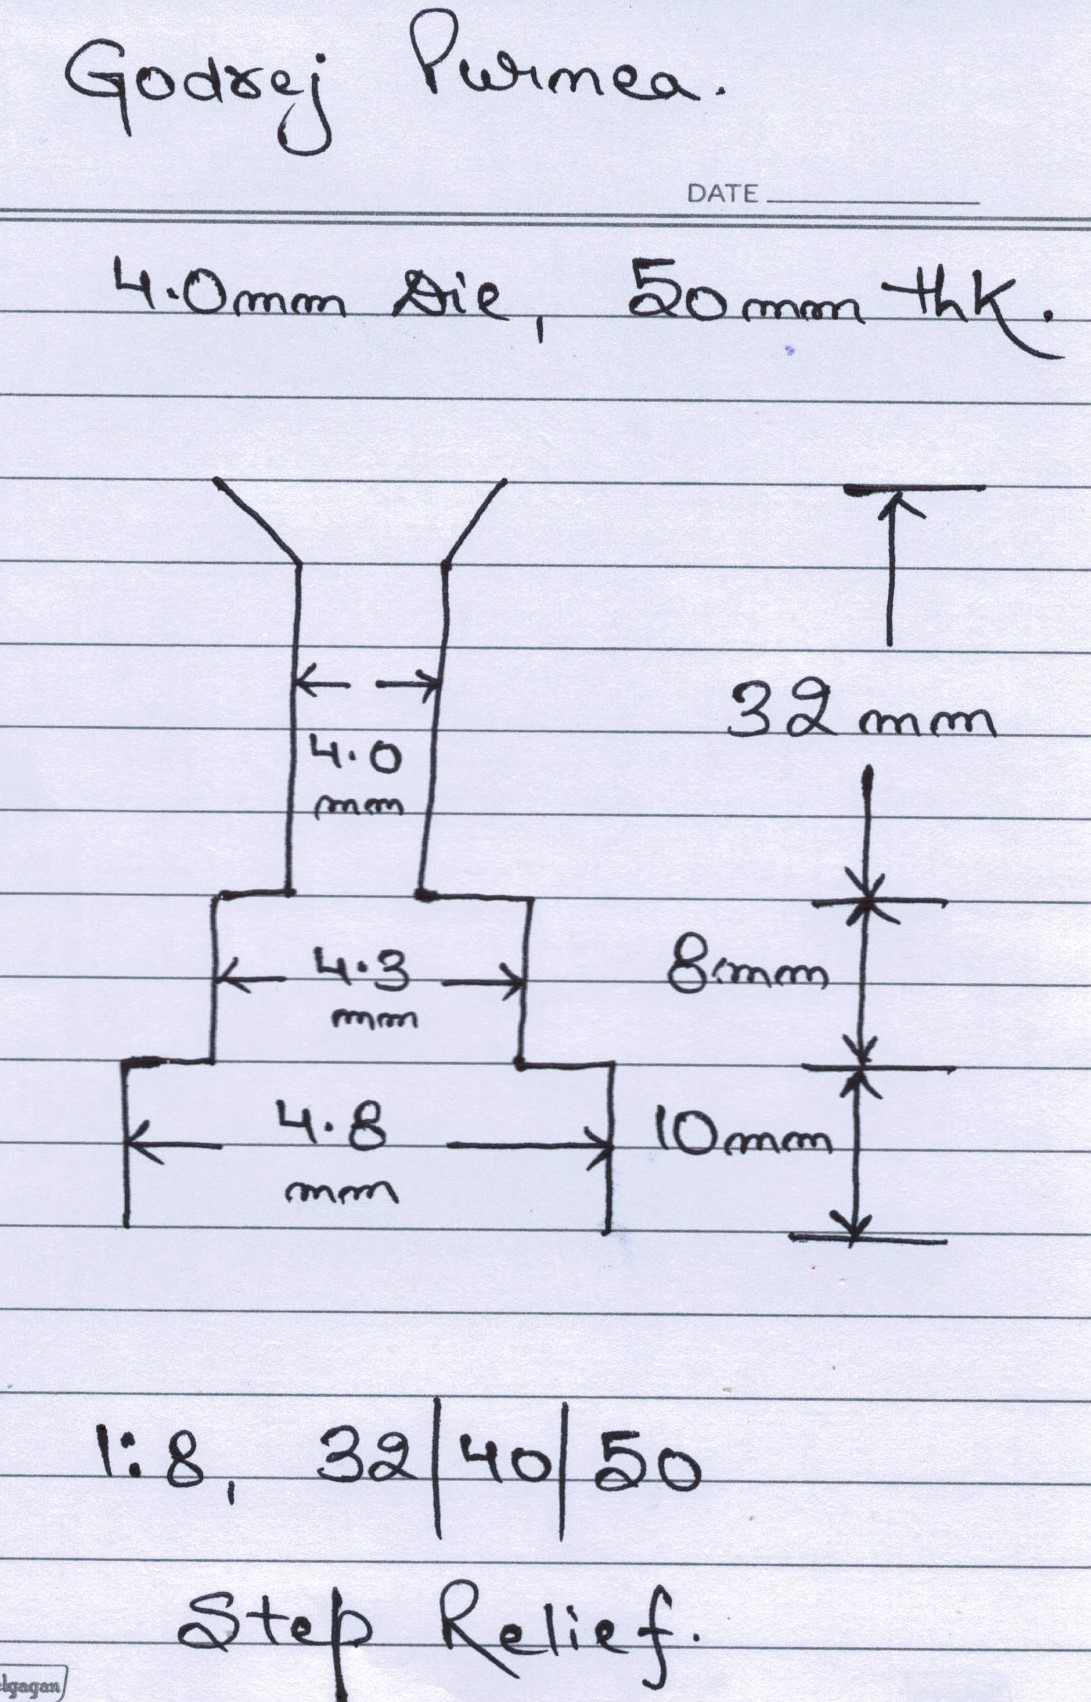 Godrej Purnea.
DATE
4.0mm Die, 50mm thk.
32mm
4.0
mm
4.3
mm
8mm
4.8
mm
10mm
1:8, 32|40|50
Step Relief.
elgagan